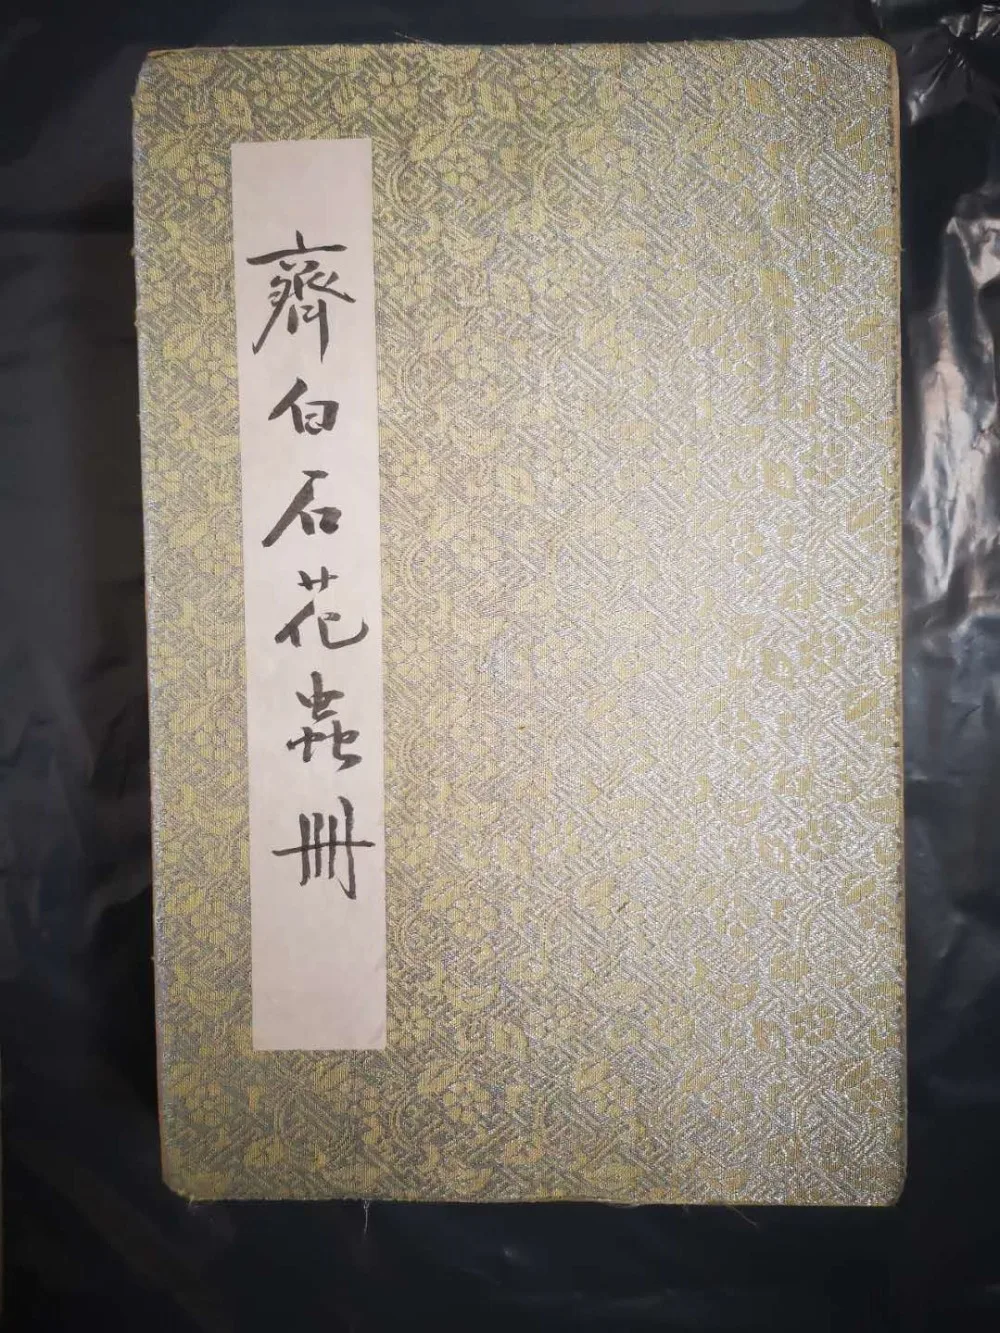 齊白石花蟲冊